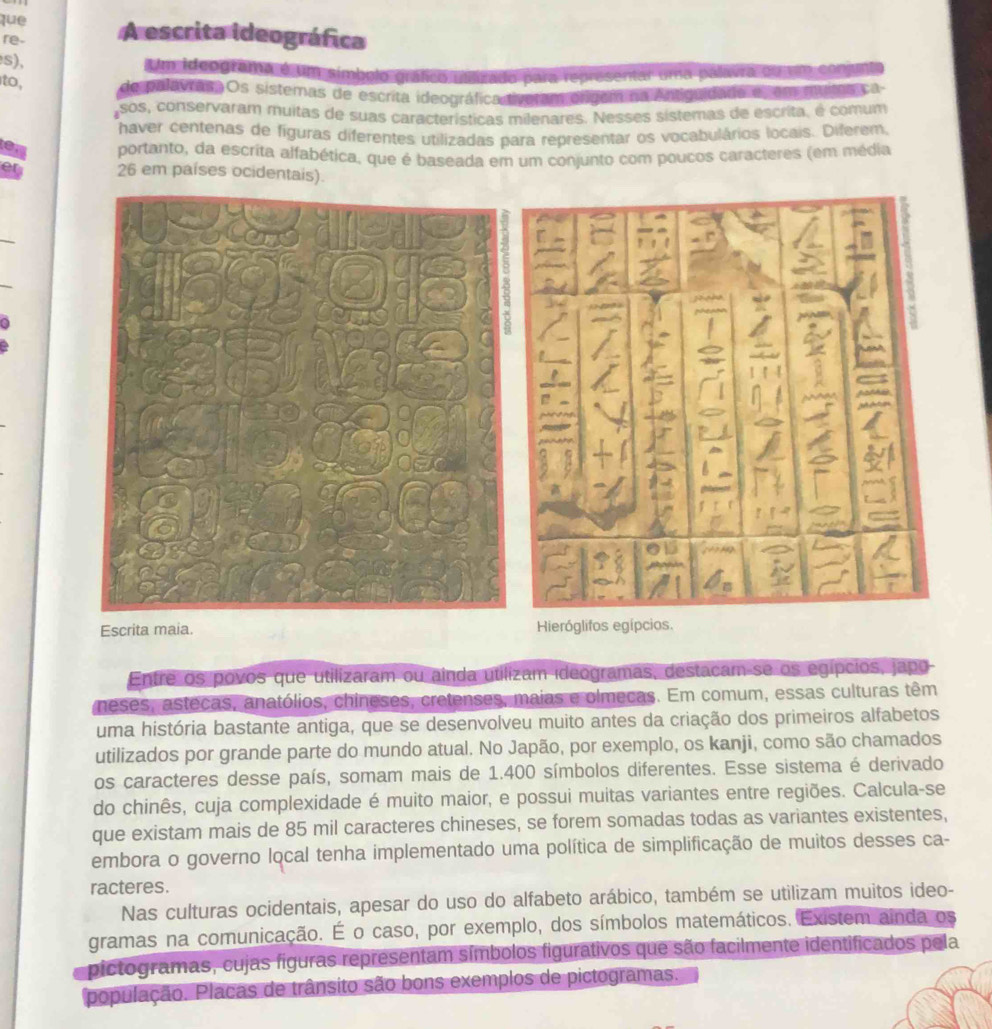 que
re-
s),
to,
te,
er
o
e
A escrita ideográfica
Um ideograma é um símbolo gráfico utilizado para representar uma palavra ou um conjunto
de palavras. Os sistemas de escrita ideográfica tiveram origem na Antiguidade e, em muitos ca-
sos, conservaram muitas de suas características milenares. Nesses sistemas de escrita, é comum
haver centenas de figuras diferentes utilizadas para representar os vocabulários locais. Diferem,
portanto, da escrita alfabética, que é baseada em um conjunto com poucos caracteres (em média
26 em países ocidentais).
stock.adobe.com/blackday
Escrita maia.
Hieróglifos egípcios.
Entre os povos que utilizaram ou ainda utilizam ideogramas, destacam-se os egípcios, japo-
neses, astecas, anatólios, chineses, cretenses, maias e olmecas. Em comum, essas culturas têm
uma história bastante antiga, que se desenvolveu muito antes da criação dos primeiros alfabetos
utilizados por grande parte do mundo atual. No Japão, por exemplo, os kanji, como são chamados
os caracteres desse país, somam mais de 1.400 símbolos diferentes. Esse sistema é derivado
do chinês, cuja complexidade é muito maior, e possui muitas variantes entre regiões. Calcula-se
que existam mais de 85 mil caracteres chineses, se forem somadas todas as variantes existentes,
embora o governo local tenha implementado uma política de simplificação de muitos desses ca-
racteres.
Nas culturas ocidentais, apesar do uso do alfabeto arábico, também se utilizam muitos ideo-
gramas na comunicação. É o caso, por exemplo, dos símbolos matemáticos. Existem ainda os
pictogramas, cujas figuras representam símbolos figurativos que são facilmente identificados pela
população. Placas de trânsito são bons exemplos de pictogramas.